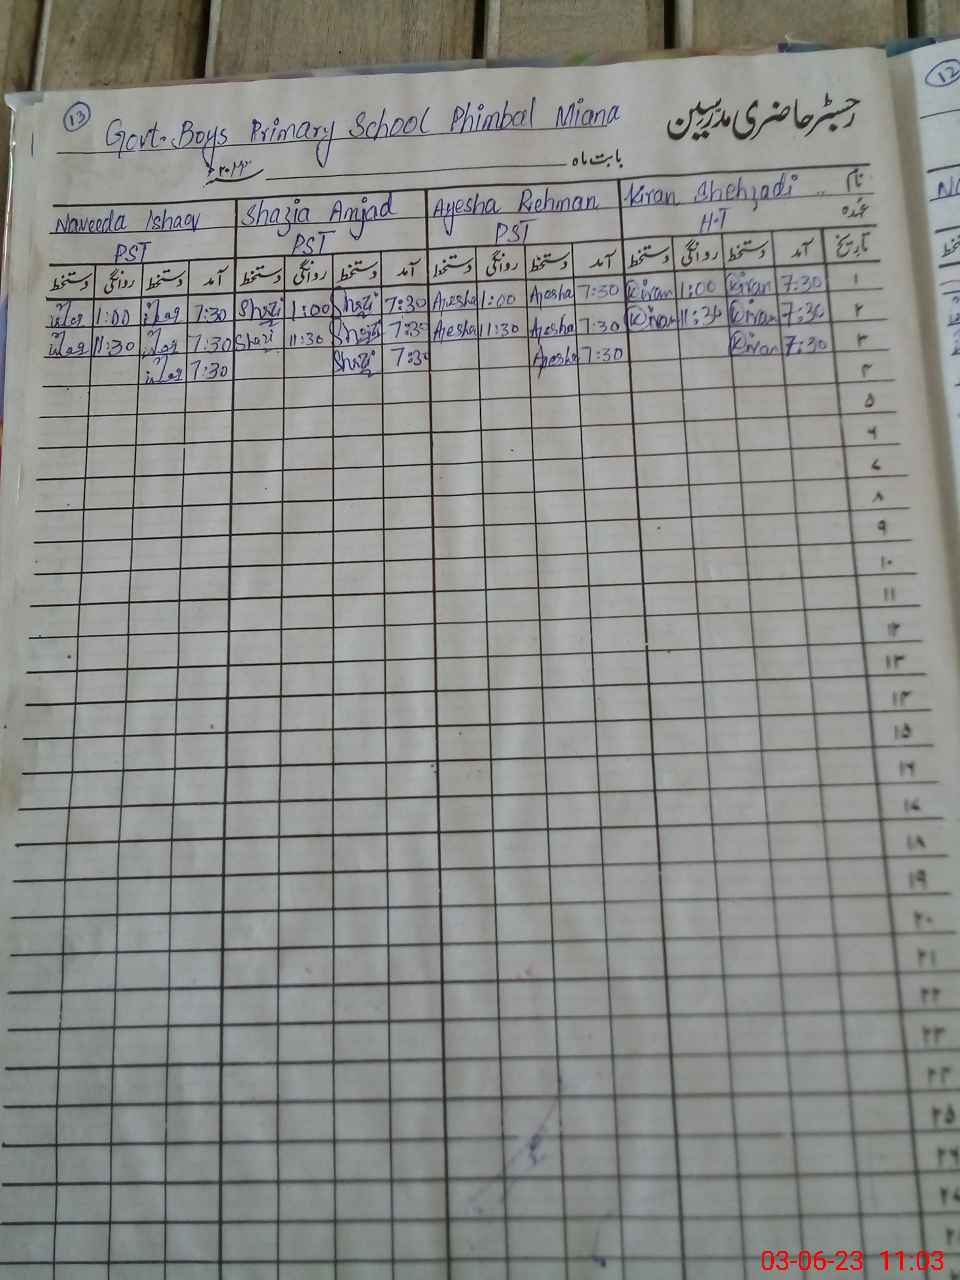 13
12
Govt. Boys Primary School Phimbal Miana رجسٹر حاضری مدرسین
بابت ماہ
Naveeda Ishaq Shazia Amjad Ayesha Rehman Kiran Shehzadi نام
PST PST PST H.T عہدہ
دستخط روانگی دستخط آمد دستخط روانگی دستخط آمد دستخط روانگی دستخط آمد دستخط روانگی دستخط آمد تاریخ
1:00 7:30 Shazi 1:00 Shazi 7:30 Ayesha 1:00 Ayesha 7:30 Kiran 1:00 Kiran 7:30 ۱
11:30 7:30 Shazi 11:30 Shazi 7:30 Ayesha 11:30 Ayesha 7:30 Kiran 11:30 Kiran 7:30 ۲
7:30 Shazi 7:30 Ayesha 7:30 Kiran 7:30 ۳
۴
۵
۶
۷
۸
۹
۱۰
۱۱
۱۲
۱۳
۱۴
۱۵
۱۶
۱۷
۱۸
۱۹
۲۰
۲۱
۲۲
۲۳
۲۴
۲۵
۲۶
۲۷
03-06-23 11:03